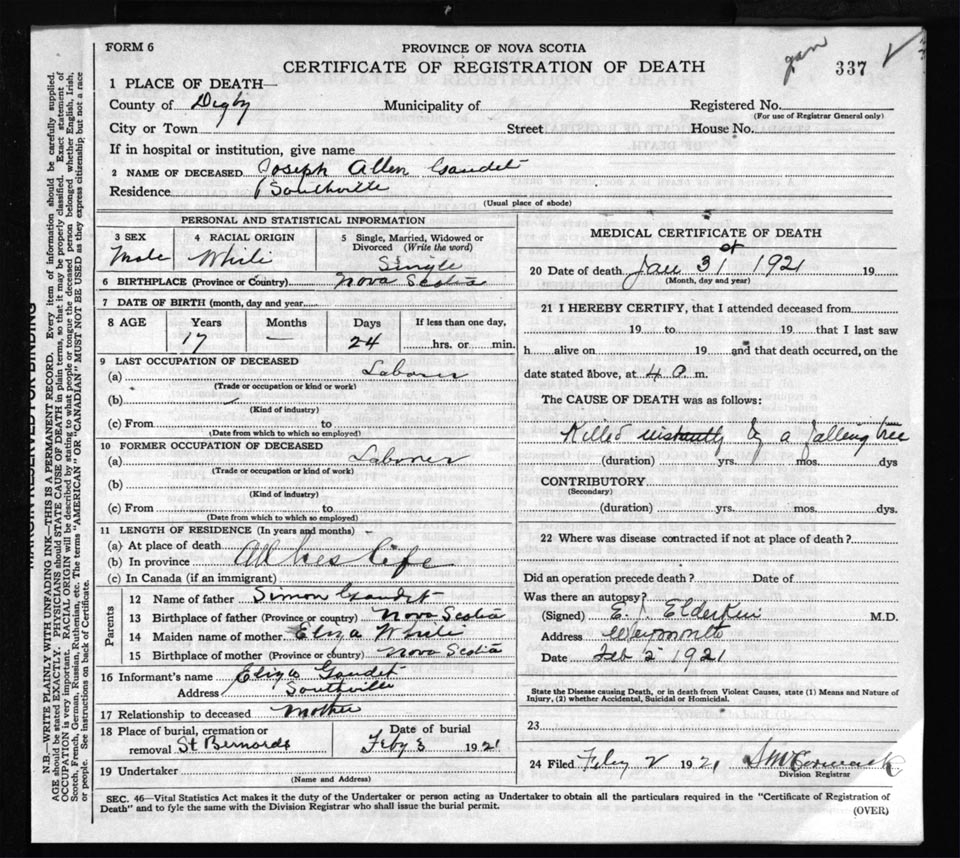 FORM 6
PROVINCE OF NOVA SCOTIA
CERTIFICATE OF REGISTRATION OF DEATH
Jan
337
1 PLACE OF DEATH—
County of Digby Municipality of Registered No.
(For use of Registrar General only)
City or Town Street House No.
If in hospital or institution, give name
2 NAME OF DECEASED Joseph Allen Gaudet
Residence Southville
(Usual place of abode)
PERSONAL AND STATISTICAL INFORMATION
3 SEX
Male
4 RACIAL ORIGIN
White
5 Single, Married, Widowed or Divorced (Write the word)
Single
6 BIRTHPLACE (Province or Country) Nova Scotia
7 DATE OF BIRTH (month, day and year)
8 AGE Years Months Days If less than one day,
17 — 24 hrs. or min.
9 LAST OCCUPATION OF DECEASED
(a) Laborer
(Trade or occupation or kind or work)
(b)
(Kind of industry)
(c) From to
(Date from which to which so employed)
10 FORMER OCCUPATION OF DECEASED
(a) Laborer
(Trade or occupation or kind of work)
(b)
(Kind of industry)
(c) From to
(Date from which to which so employed)
11 LENGTH OF RESIDENCE (In years and months)
(a) At place of death All his life
(b) In province
(c) In Canada (if an immigrant)
Parents
12 Name of father Simon Gaudet
13 Birthplace of father (Province or country) Nova Scotia
14 Maiden name of mother Eliza White
15 Birthplace of mother (Province or country) Nova Scotia
16 Informant's name Eliza Gaudet
Address Southville
17 Relationship to deceased Mother
18 Place of burial, cremation or removal St Bernards
Date of burial
Feby 3 1921
19 Undertaker
(Name and Address)
MEDICAL CERTIFICATE OF DEATH
20 Date of death Jan 31 1921 19
(Month, day and year)
21 I HEREBY CERTIFY, that I attended deceased from
19 to 19 that I last saw
h alive on 19 and that death occurred, on the
date stated above, at 4 a m.
The CAUSE OF DEATH was as follows:
Killed instantly by a falling tree
(duration) yrs. mos. dys
CONTRIBUTORY
(Secondary)
(duration) yrs. mos. dys.
22 Where was disease contracted if not at place of death?
Did an operation precede death? Date of
Was there an autopsy?
(Signed) E. Elderkin M.D.
Address Weymouth
Date Feb 2 1921
State the Disease causing Death, or in death from Violent Causes, state (1) Means and Nature of
Injury, (2) whether Accidental, Suicidal or Homicidal.
23
24 Filed Feby 2 1921
Division Registrar
SEC. 46—Vital Statistics Act makes it the duty of the Undertaker or person acting as Undertaker to obtain all the particulars required in the "Certificate of Registration of
Death" and to fyle the same with the Division Registrar who shall issue the burial permit.
(OVER)
MARGIN RESERVED FOR BINDING
N.B.—WRITE PLAINLY WITH UNFADING INK—THIS IS A PERMANENT RECORD. Every item of information should be carefully supplied.
AGE should be stated EXACTLY. PHYSICIANS should STATE CAUSE OF DEATH in plain terms, so that it may be properly classified. Exact statement of
OCCUPATION is very important. RACIAL ORIGIN will be described by stating to what people or tongue the deceased person belonged whether English, Irish,
Scotch, French, German, Russian, Ruthenian, etc. The terms "AMERICAN" or "CANADIAN" MUST NOT BE USED as they express citizenship but not a race
or people. See instructions on back of Certificate.